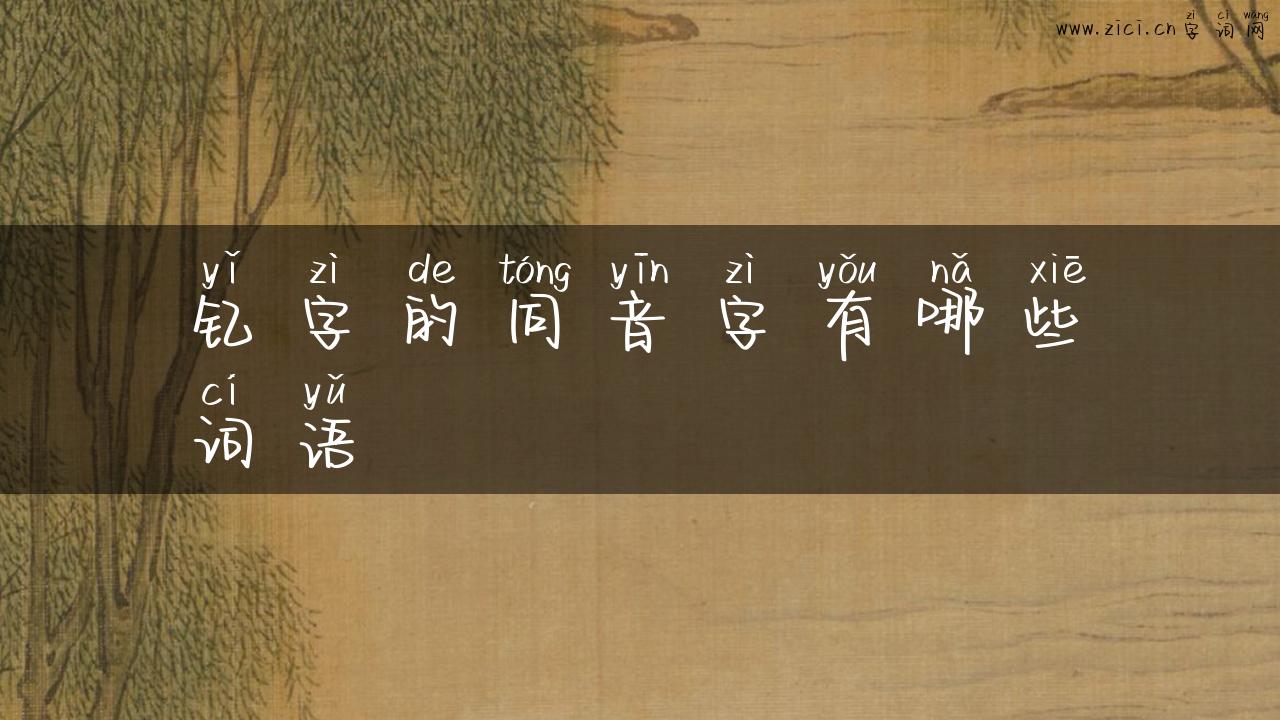 zì cí wǎng
www.zici.cn 字词网
yǐ zì de tóng yīn zì yǒu nǎ xiē
钇字的同音字有哪些
cí yǔ
词语